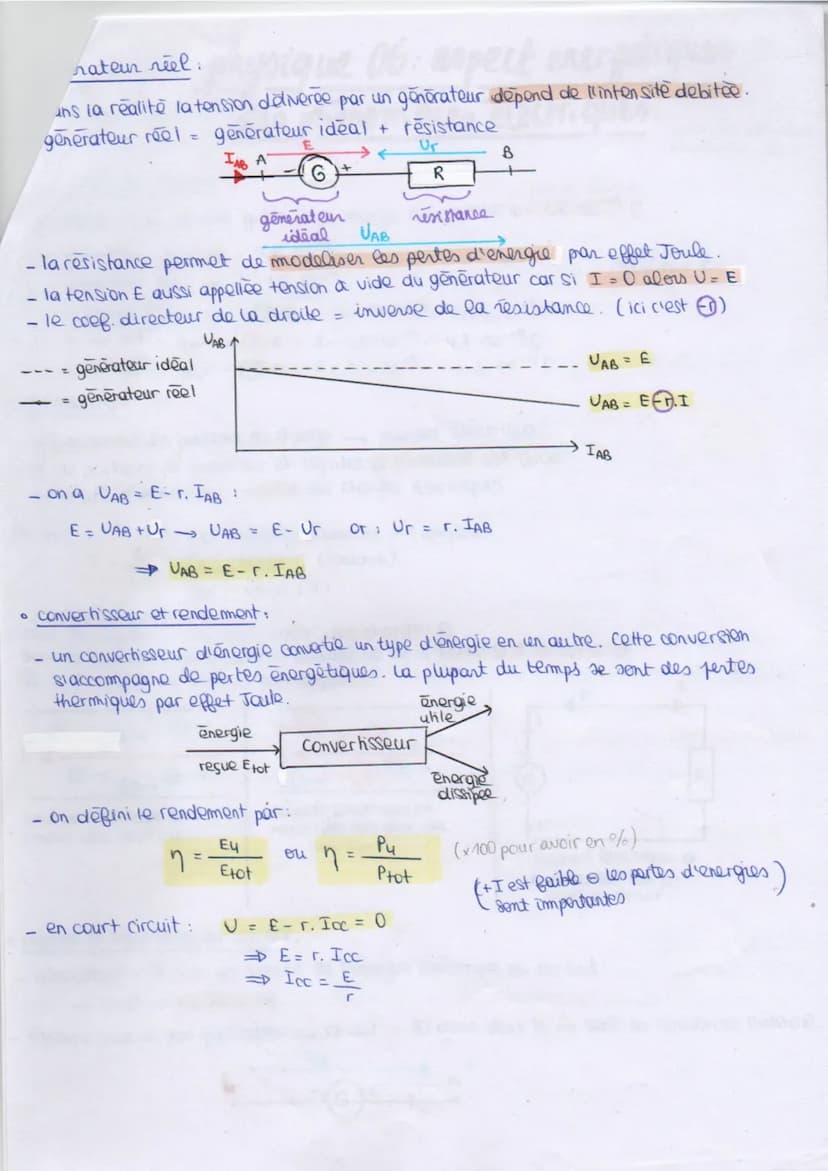 rateur réel :
ans la réalité la tension délivérée par un générateur dépend de l'intensité debitée.
générateur réel = générateur idéal + résistance
I_AB A E Ur B
- G + R
générateur idéal résistance
U_AB
- la résistance permet de modeliser les pertes d'energie par effet Joule.
- la tension E aussi appellée tension à vide du générateur car si I = 0 alors U = E
- le coef. directeur de la droite = inverse de la résistance. (ici c'est -r)
U_AB
--- = générateur idéal
— = générateur réel
U_AB = E
U_AB = E-r.I
I_AB
- on a U_AB = E - r. I_AB :
E = U_AB + Ur → U_AB = E - Ur or : Ur = r. I_AB
⇒ U_AB = E - r. I_AB
• convertisseur et rendement :
- un convertisseur d'énergie convertie un type d'énergie en un autre. Cette conversion
s'accompagne de pertes énergétiques. La plupart du temps se sont des pertes
thermiques par effet Joule.
énergie reçue Etot
Convertisseur
énergie utile
énergie dissipée
- on défini le rendement par :
η = Eu / Etot ou η = Pu / Ptot (x100 pour avoir en %)
(+I est faible ⊖ les pertes d'energies
sont importantes)
- en court circuit : U = E - r. Icc = 0
⇒ E = r. Icc
⇒ Icc = E / r